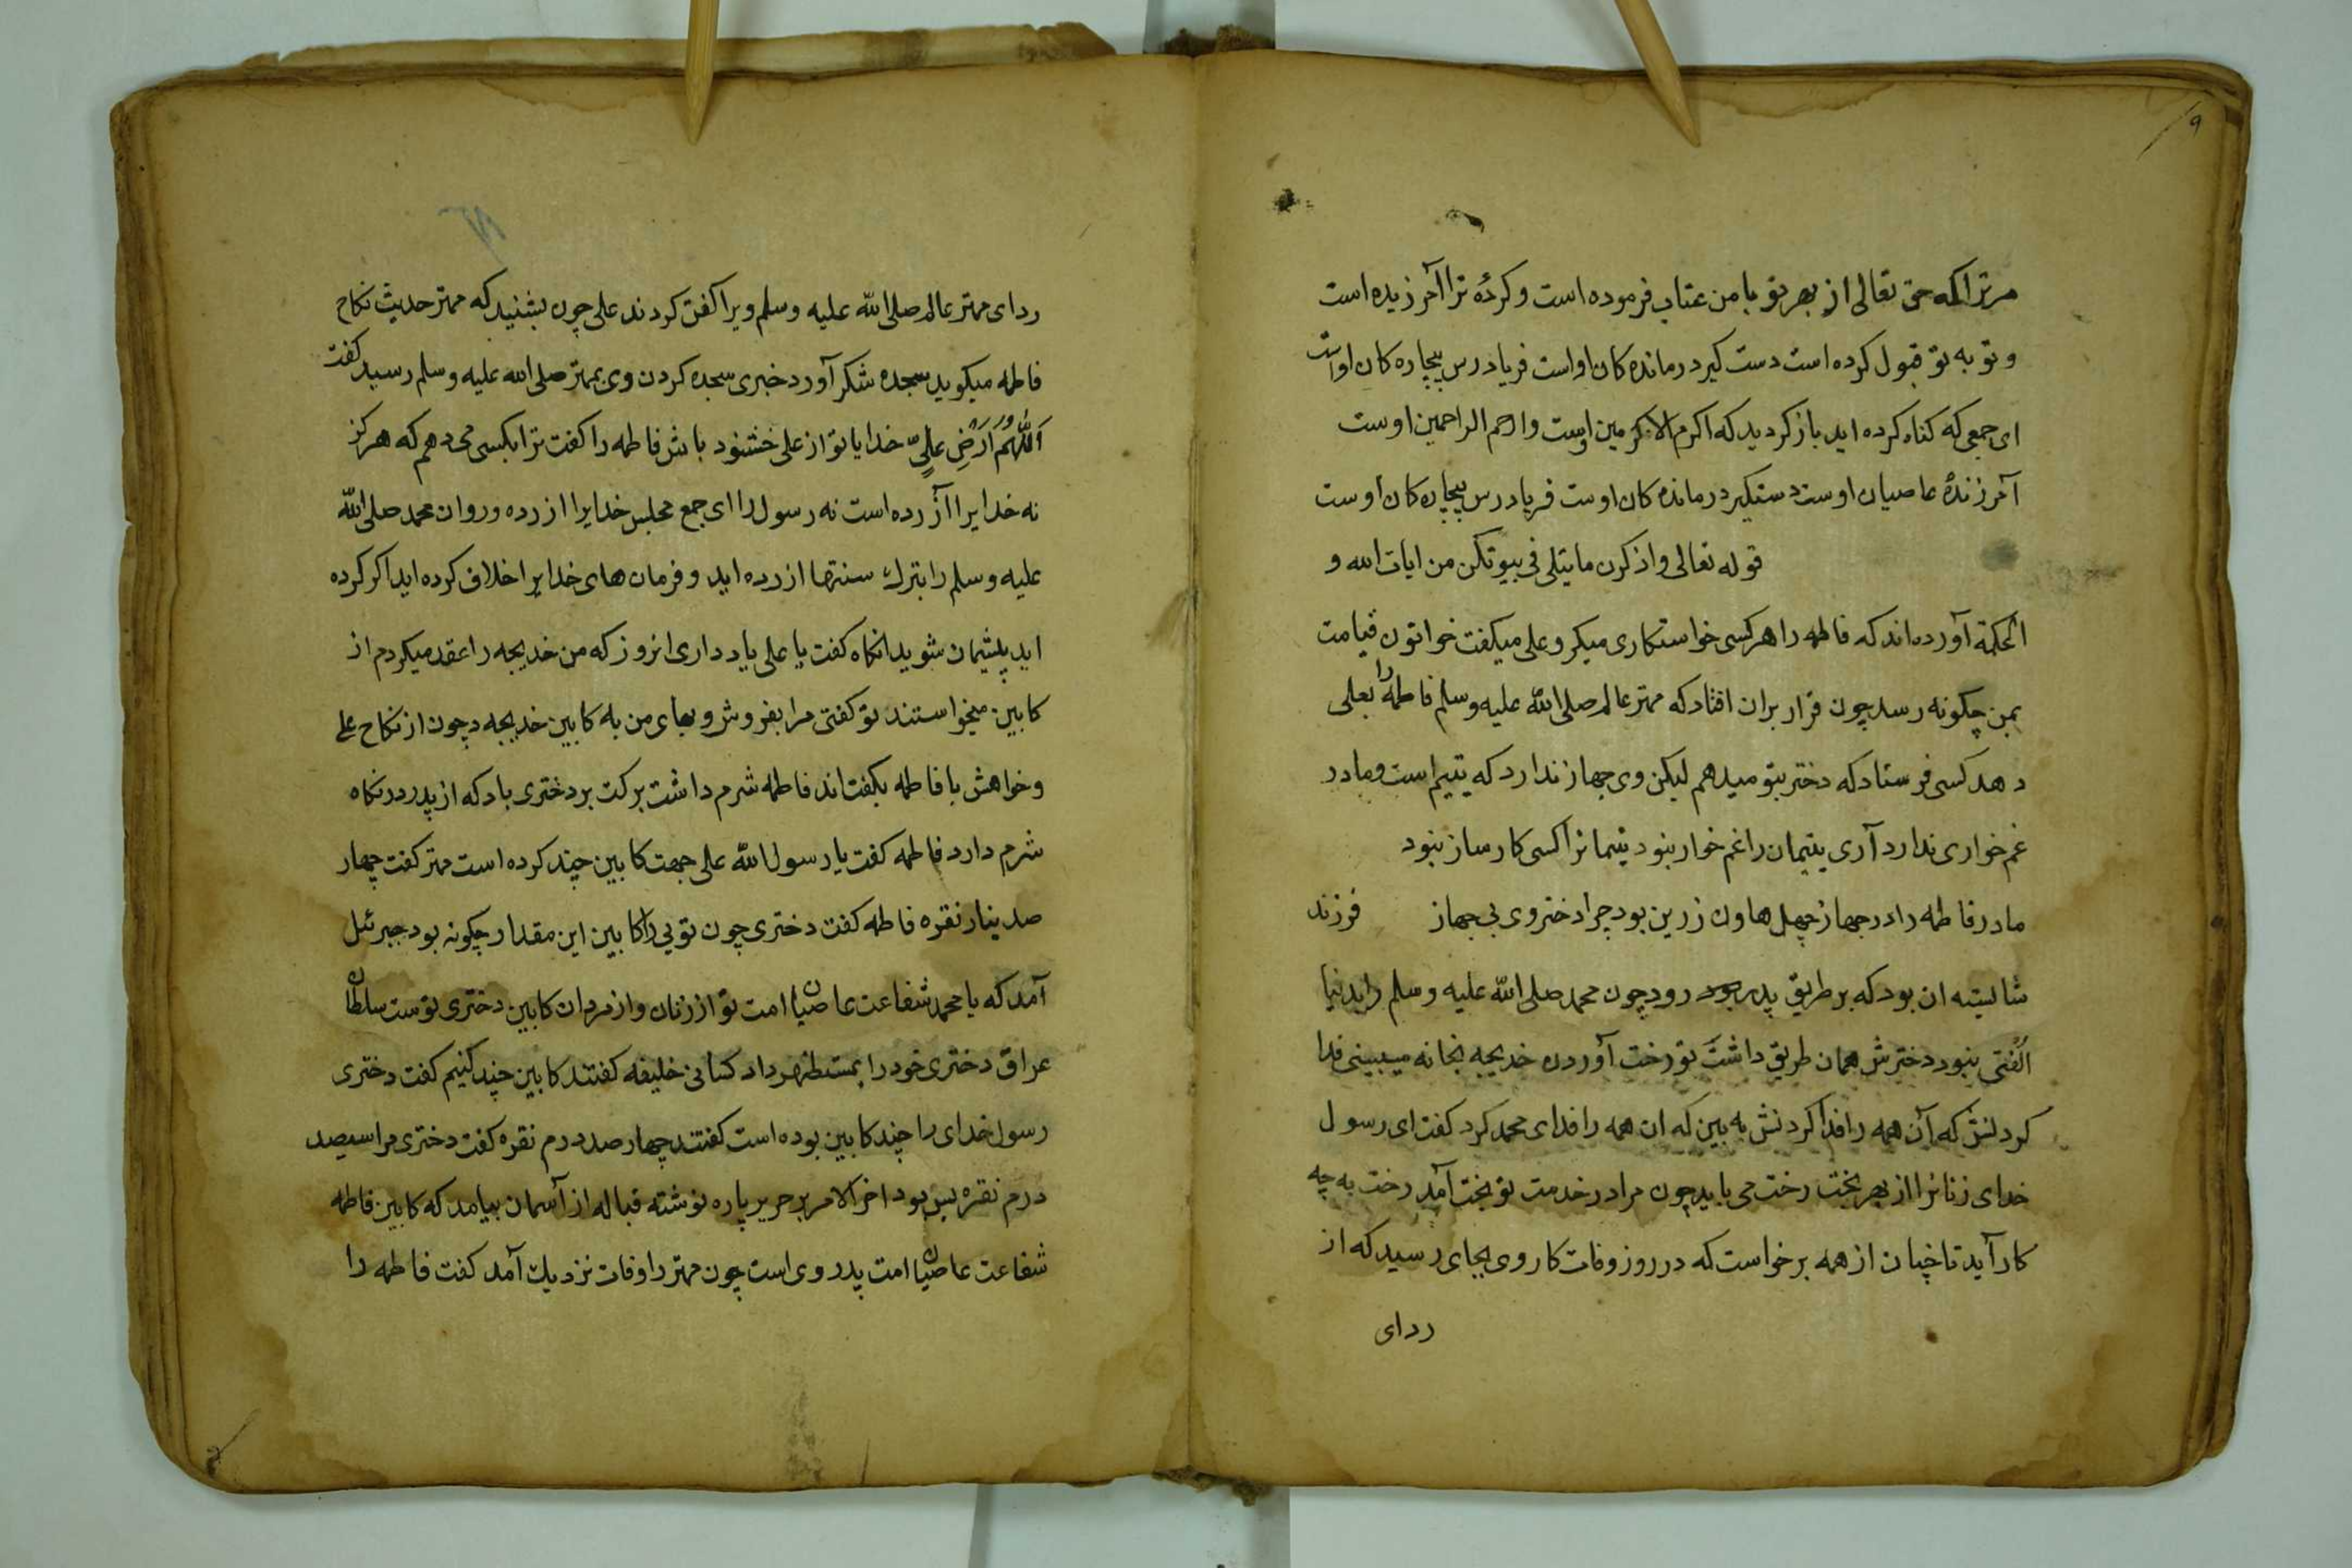 ۹
مر ترا که حق تعالی از بهر تو با من عتاب فرموده است و کردهٔ ترا آمرزیده است
و توبه تو قبول کرده است دست کیر درمانده کان او است فریادرس بیچاره کان اوست
ای جمعی که کناه کرده اید باز کردید که اکرم الاکرمین اوست وارحم الراحمین اوست
آمرزندهٔ عاصیان اوست دستکیر درمانده کان اوست فریادرس بیچاره کان اوست
قوله تعالی واذکرن ما یتلی فی بیوتکن من ایات الله و
الحکمة آورده اند که فاطمه را هرکسی خواستکاری میکر و علی میکفت خواتون قیامت
بمن چکونه رسد چون قرار بران افتاد که مهتر عالم صلی الله علیه وسلم فاطمه را بعلی
دهد کسی فرستاد که دختر بتو میدهم لیکن وی جهاز ندارد که یتیم است ومادر
غم خواری ندارد آری یتیمان را غم خوار نبود یتیمانرا کسی کارساز نبود
مادر فاطمه را در جهاز چهل هاون زرین بود چرا دختر وی بی جهاز فرزند
شایسته ان بود که بر طریق پدر خود رود چون محمد صلی الله علیه وسلم را بدنیا
الفتی نبود دخترش همان طریق داشت تو رخت آوردن خدیجه بخانه میبینی فدا
کردنش که آن همه را فدا کردنش به بین که ان همه را فدای محمد کرد کفت ای رسول
خدای زنانرا از بهر بخت رخت می باید چون مرا در خدمت تو بخت آمد رخت به چه
کار آید تا چنان از همه برخواست که در روز وفات کار وی بجای رسید که از
ردای
ردای مهتر عالم صلی الله علیه وسلم ویرا کفن کردند علی چون بشنید که مهتر حدیث نکاح
فاطمه میکوید سجده شکر آورد خبری سجده کردن وی بمهتر صلی الله علیه وسلم رسید کفت
اَللّٰهُمَّ اَرْضِ عَلِیٍّ خدایا تو از علی خشنود باش فاطمه را کفت ترا بکسی می دهم که هرکز
نه خدایرا آزرده است نه رسول را ای جمع مجلس خدایرا ازرده و روان محمد صلی الله
علیه وسلم را بترك سنتها ازرده اید و فرمان های خدایرا خلاف کرده اید اکر کرده
اید پشیمان شوید انکاه کفت یا علی یاد داری انروز که من خدیجه را عقد میکردم از
کابین میخواستند تو کفتی مرا بفروش و بهای من به کابین خدیجه ده چون از نکاح علی
وخواهش با فاطمه بکفت اند فاطمه شرم داشت برکت بر دختری باد که از پدر در نکاه
شرم دارد فاطمه کفت یا رسول الله علی جهت کابین چند کرده است مهتر کفت چهار
صد ینار نقره فاطمه کفت دختری چون تویی را کابین این مقدار چکونه بود جبرئل
آمد که یا محمد شفاعت عاصیان امت تو از زنان و از مردان کابین دختری توست سلطان
عراق دختری خود را بمستظهر داد کسانی خلیفه کفتند کابین چند کنیم کفت دختری
رسول خدای را چند کابین بوده است کفتند چهار صد درم نقره کفت دختری مرا سیصد
درم نقره بس بود اخر الامر بر حریر پاره نوشته قباله از آسمان بیامد که کابین فاطمه
شفاعت عاصیان امت پدر وی است چون مهتر را وفات نزدیك آمد کفت فاطمه را